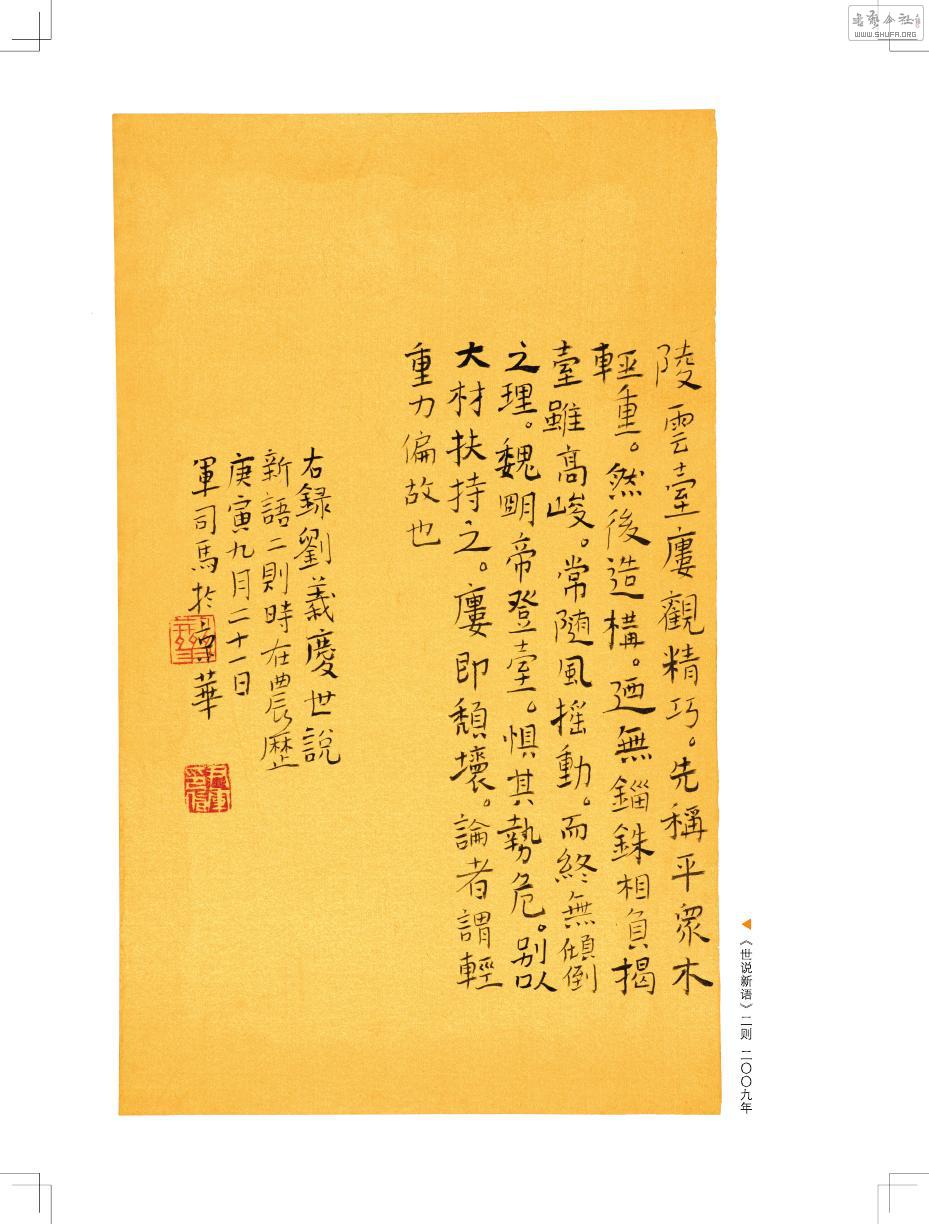 陵雲臺廔觀精巧。先稱平眾木
輕重。然後造構。迺無錙銖相負揭
臺雖高峻。常隨風摇動。而終無傾倒
之理。魏明帝登臺。惧其勢危。别以
大材扶持之。廔即頽壞。論者謂輕
重力偏故也
右録劉義慶世說
新語二則時在農歷
庚寅九月二十一日
軍司馬於京華
《世说新语》二则 二〇〇九年
WWW.SHUFA.ORG